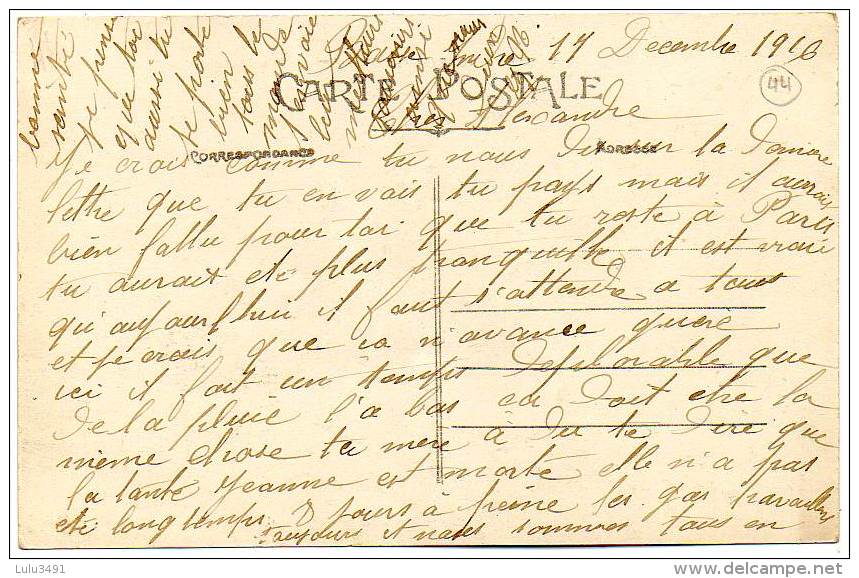 17 Decembre 1916
44
CARTE POSTALE
Cher Alexandre
CORRESPONDANCE
ADRESSE
Je crois comme tu nous dis sur la
lettre que tu en vais tu pays mais il aurais
bien fallu pour toi que tu reste à Paris
tu aurait ete plus tranquille il est vraie
qu'aujourd'hui il faut s'attendre a tous
et je crois que ca n'avance guere
ici il fait un temps deplorable que
de la pluie l'a bas ca doit etre la
même chose ta mere à du te dire que
la tante Jeanne est morte elle n'a pas
ete longtemps 8 jours à peine les gas
toujours et nous sommes tous en
bonne
santé
je pense
que toi
aussi tu
te porte
bien
tous le
monde
t'envoie
Lulu3491
delcampe.net